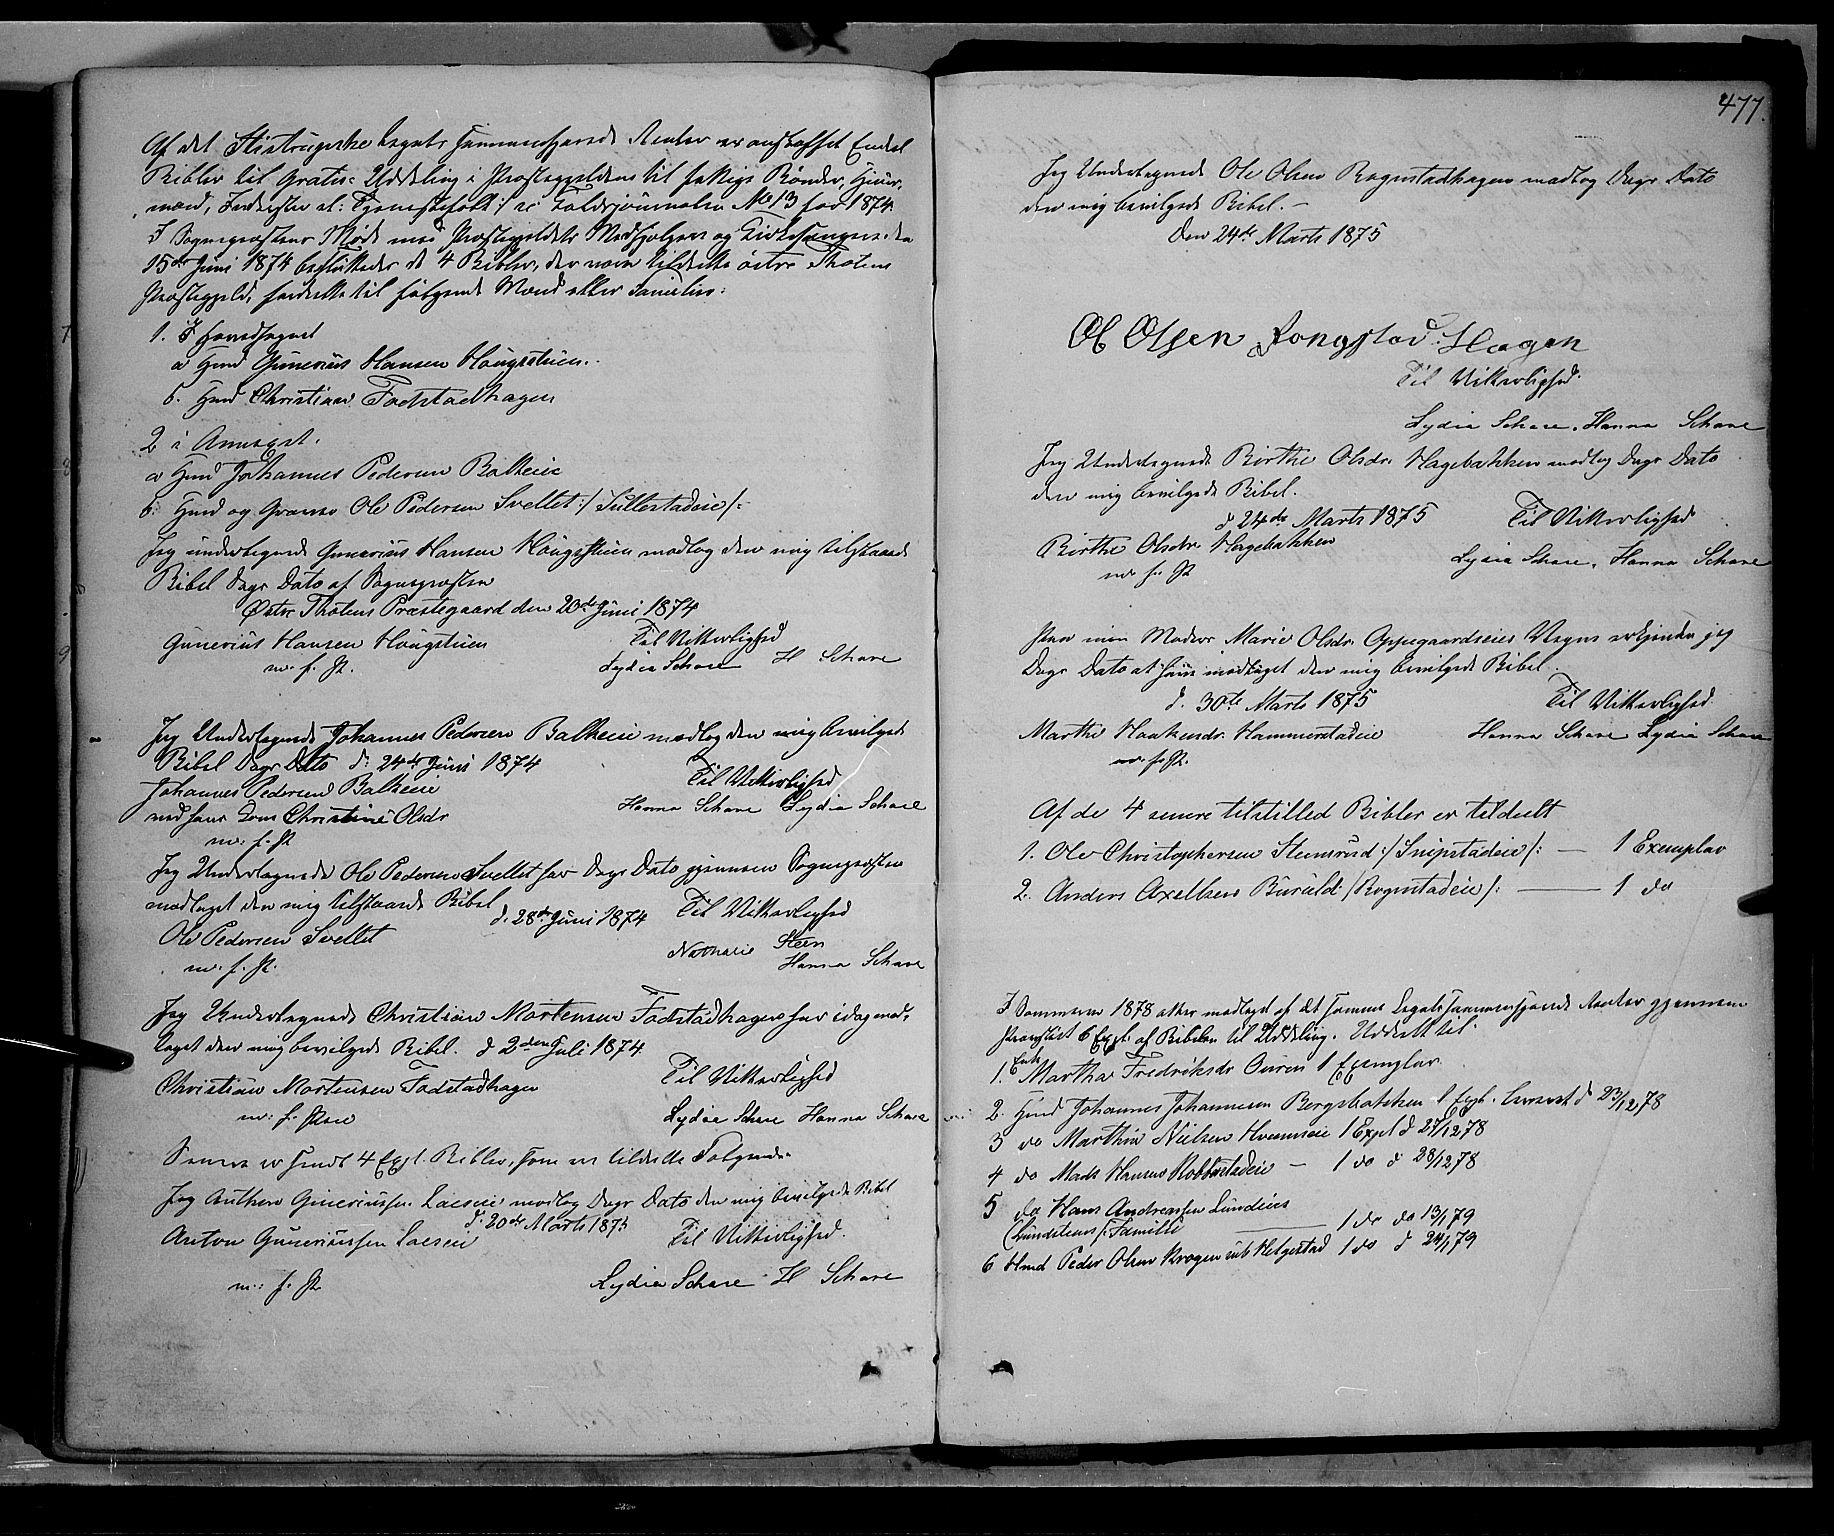 Af det Stistrupske Legats sammensparede Renter er anskaffet Endel
Bibler til Gratis-Uddeling i Præstegjeldene til fattige Bønder, Huus-
mænd, Inderster el: Tjenestefolk :/ se Coldsjournalen No 13 for 1874.
I Sognepræstens Møde med Præstegjeldets Medhjelpere og Kirkesangere den
15de Juni 1874 besluttedes de 4 Bibler, der vare tildelte østre Thotens
Præstegjeld, fordelte til følgende Mænd eller Familier:
1. I Hovedsognet
a Hmd Gunerius Hansen Haugstuen.
b. Hmd Christian Fodstadhagen
2 i Annexet.
a Hmd Johannes Pedersen Balkeie
b. Hmd og Ole Pedersen Svellet :/ Sullestadeie /:
Jeg undertegnede Gunerius Hansen Haugstuen modtog den mig tilstaaede
Bibel Dags Dato af Sognepræsten
Østre Thotens Præstegaard den 20de Juni 1874
Gunerius Hansen Haugstuen Til Vitterlighed
m. f. P. Lydia Schare H Schare
Jeg Undertegnede Johannes Pedersen Balkeie modtog den mig bevilgede
Bibel Dags Dato d: 24de Juni 1874
Johannes Pedersen Balkeie Til Vitterlighed
ved hans Kone Christine Olsdr Hanna Schare Lydia Schare
m. f. P
Jeg Undertegnede Ole Pedersen Svellet har Dags Dato gjennem Sognepræsten
modtaget den mig tilstaaede Bibel
d. 28de Juni 1874 Til Vitterlighed
Ole Pedersen Svellet Nathalie Steen
m. f. P. Hanna Schare
Jeg Undertegnede Christian Mortensen Fodstadhagen har idag mod-
taget den mig bevilgede Bibel. d 2den Juli 1874.
Til Vitterlighed
Christian Mortensen Fodstadhagen
m: f. Pen Lydia Schare Hanna Schare
Senere er sendt 4 Expl. Bibler, som er tildelte Følgende
Jeg Anthon Guneriussen Laeseie modtog Dags Dato den mig bevilgede Bibel
d: 20de Marts 1875
Anton Gunerius­sen Laeseie Til Vitterlighed.
m: f. P Lydia Schare H Schare
477.
Jeg Undertegnede Ole Olsen Rognstadhagen modtog Dags Dato
den mig bevilgede Bibel. –
Den 24de Marts 1875
Ol Olsen Rongstad Hagen
Til Vitterlighed.
Lydia Schare. Hanna Schare
Jeg Undertegnede Birthe Olsdr Hagebakken modtog Dags Dato
den mig bevilgede Bibel.
d 24de Marts 1875 Til Vitterlighed
Birthe Olsdr Hagebakken
m. f. P Lydia Schare, Hanna Schare
Paa min Moders Marie Olsdr Oppegaardseies Vegne erkjender jeg
Dags Dato at have modtaget den mig bevilgede Bibel.
d. 30te Marts 1875 Til Vitterlighed.
Marthe Haakensdr Hammerstadeie Hanna Schare Lydia Schare
m. f. P.
Af de 4 senere tilstilled Bibler er tildeelt
1. Ole Christophersen Stemsrud :/ Snipstadeie /: — 1 Exemplar
2. Anders Axelsen Buruld / Rognstadeie /: — 1 do
I Sommeren 1878 atter modtaget af det samme Legats sammensparede Renter gjennem
Provstiet 6 Expl. af Bibelen til Uddeling. Uddeelt til
1. Enke Martha Fredriksdr Ouren 1 Exemplar
2. Hmd Johannes Johannesen Bergsbakken 1 Expl. leveret d 23/12 78
3 do Marthin Nielsen Hveemeie 1 Expl d 27/12 78
4 do Mads Hansen Kolbastadeie — 1 do d 28/12 78
5 do Hans Andreassen Lundeies
(Lundstuens /: Familie — 1 do do 13/1 79
6 Hmd Peder Olsen Krogen u/ Helgestad 1 do d 24/1 79